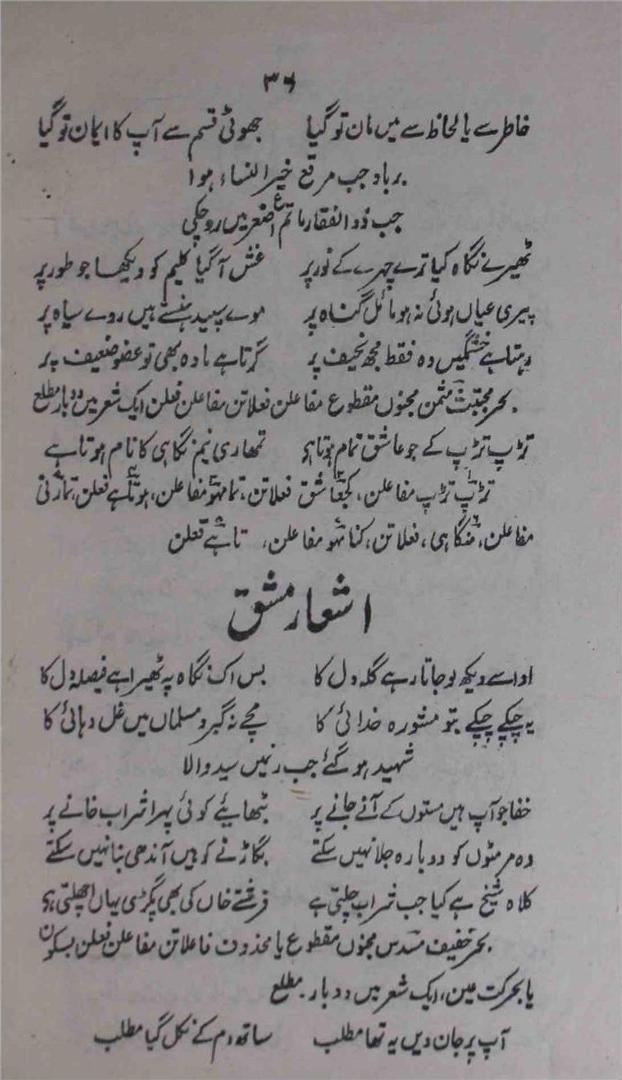 ۳۶
خاطر سے یا لحاظ سے میں مان تو گیا جھوٹی قسم سے آپ کا ایمان تو گیا
برباد جب مرقع خیر النساء ہوا
جب ذوالفقار ماتم اصغر میں رو چکی
ٹھیرے نگاہ کیا ترے چہرے کے نور پر غش آگیا کلیم کو دیکھا جو طور پر
پیری عیاں ہوئی نہ ہو مائل گناہ پر موے سپید ہنستے ہیں روے سیاہ پر
رہتا ہے خشمگیں وہ فقط مجھ نحیف پر گرتا ہے مادہ بھی تو عضو ضعیف پر
بحر مجتث مثمن مخبون مقطوع مفاعلن فعلاتن مفاعلن فعلن ایک شعر میں دو بار مطلع
تڑپ تڑپ کے جو عاشق تمام ہوتا ہی تمھاری نیم نگاہی کا نام ہوتا ہے
تڑپ تڑپ مفاعلن، کجعاشق فعلاتن، تمامہو مفاعلن، ہوتا ہے فعلن، تمارنی
مفاعلن، منگاہی، فعلاتن، کنا مہو مفاعلن، تا ہے فعلن
اشعار مشق
ادا سے دیکھ لو جاتا رہے گلہ دل کا بس اک نگاہ پہ ٹھیرا ہے فیصلہ دل کا
یہ چپکے چپکے بتو مشورہ خدائی کا مچے نہ گبر و مسلماں میں غل دہائی کا
شہید ہو گئے جب رن میں سید والا
خفا جو آپ ہیں مستوں کے آنے جانے پر بٹھایئے کوئی پہرا شراب خانے پر
وہ مرمٹوں کو دوبارہ جلا نہیں سکتے بگاڑنے کو ہیں آندھی بنا نہیں سکتے
کلاہ شیخ ہے کیا جب شراب چلتی ہے فرشتے خاں کی بھی پگڑی یہاں اچھلتی ہی
بحر خفیف مسدس مخبون مقطوع یا محذوف فاعلاتن مفاعلن فعلن بسکون
یا بحرکت عین، ایک شعر میں دو بار۔ مطلع
آپ پر جان دیں یہ تھا مطلب ساتھ دم کے نکل گیا مطلب